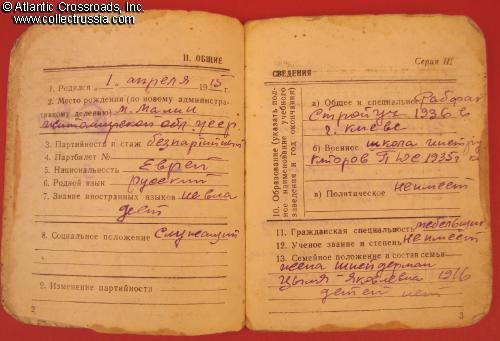 © Atlantic Crossroads, Inc.
www.collectrussia.com
II. ОБЩИЕ
1. Родился 1. апреля 1915 г.
2. Место рождения (по новому администра-
тивному делению) м. Малин
житомирской обл. усср
3. Партийность и стаж безпартийный
4. Партбилет №
5. Национальность Еврей
6. Родной язык русский
7. Знание иностранных языков не вла
деет
8. Социальное положение Служащий
9. Изменение партийности
2
Серия III
СВЕДЕНИЯ
10. Образование (указать пол-
ное наименование учебного
заведения и год окончания)
а) Общее и специальное Рабфак
1936 г
г. Киеве
б) Военное школа
1935 г.
в) Политическое Не имеет
11. Гражданская специальность
12. Ученое звание и степень Не имеет
13. Семейное положение и состав семьи
жена Шнейдерман
Яковлевна 1916
детей нет
3